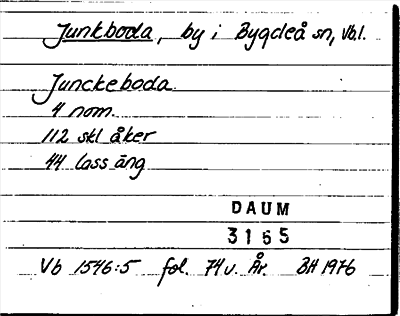 Junkboda, by i Bygdeå sn, Vbl.
Junckeboda
4 nom.
112 skl åker
44 lass äng
DAUM
3165
Vb 1546:5 fol. 74 v. År. BH 1976